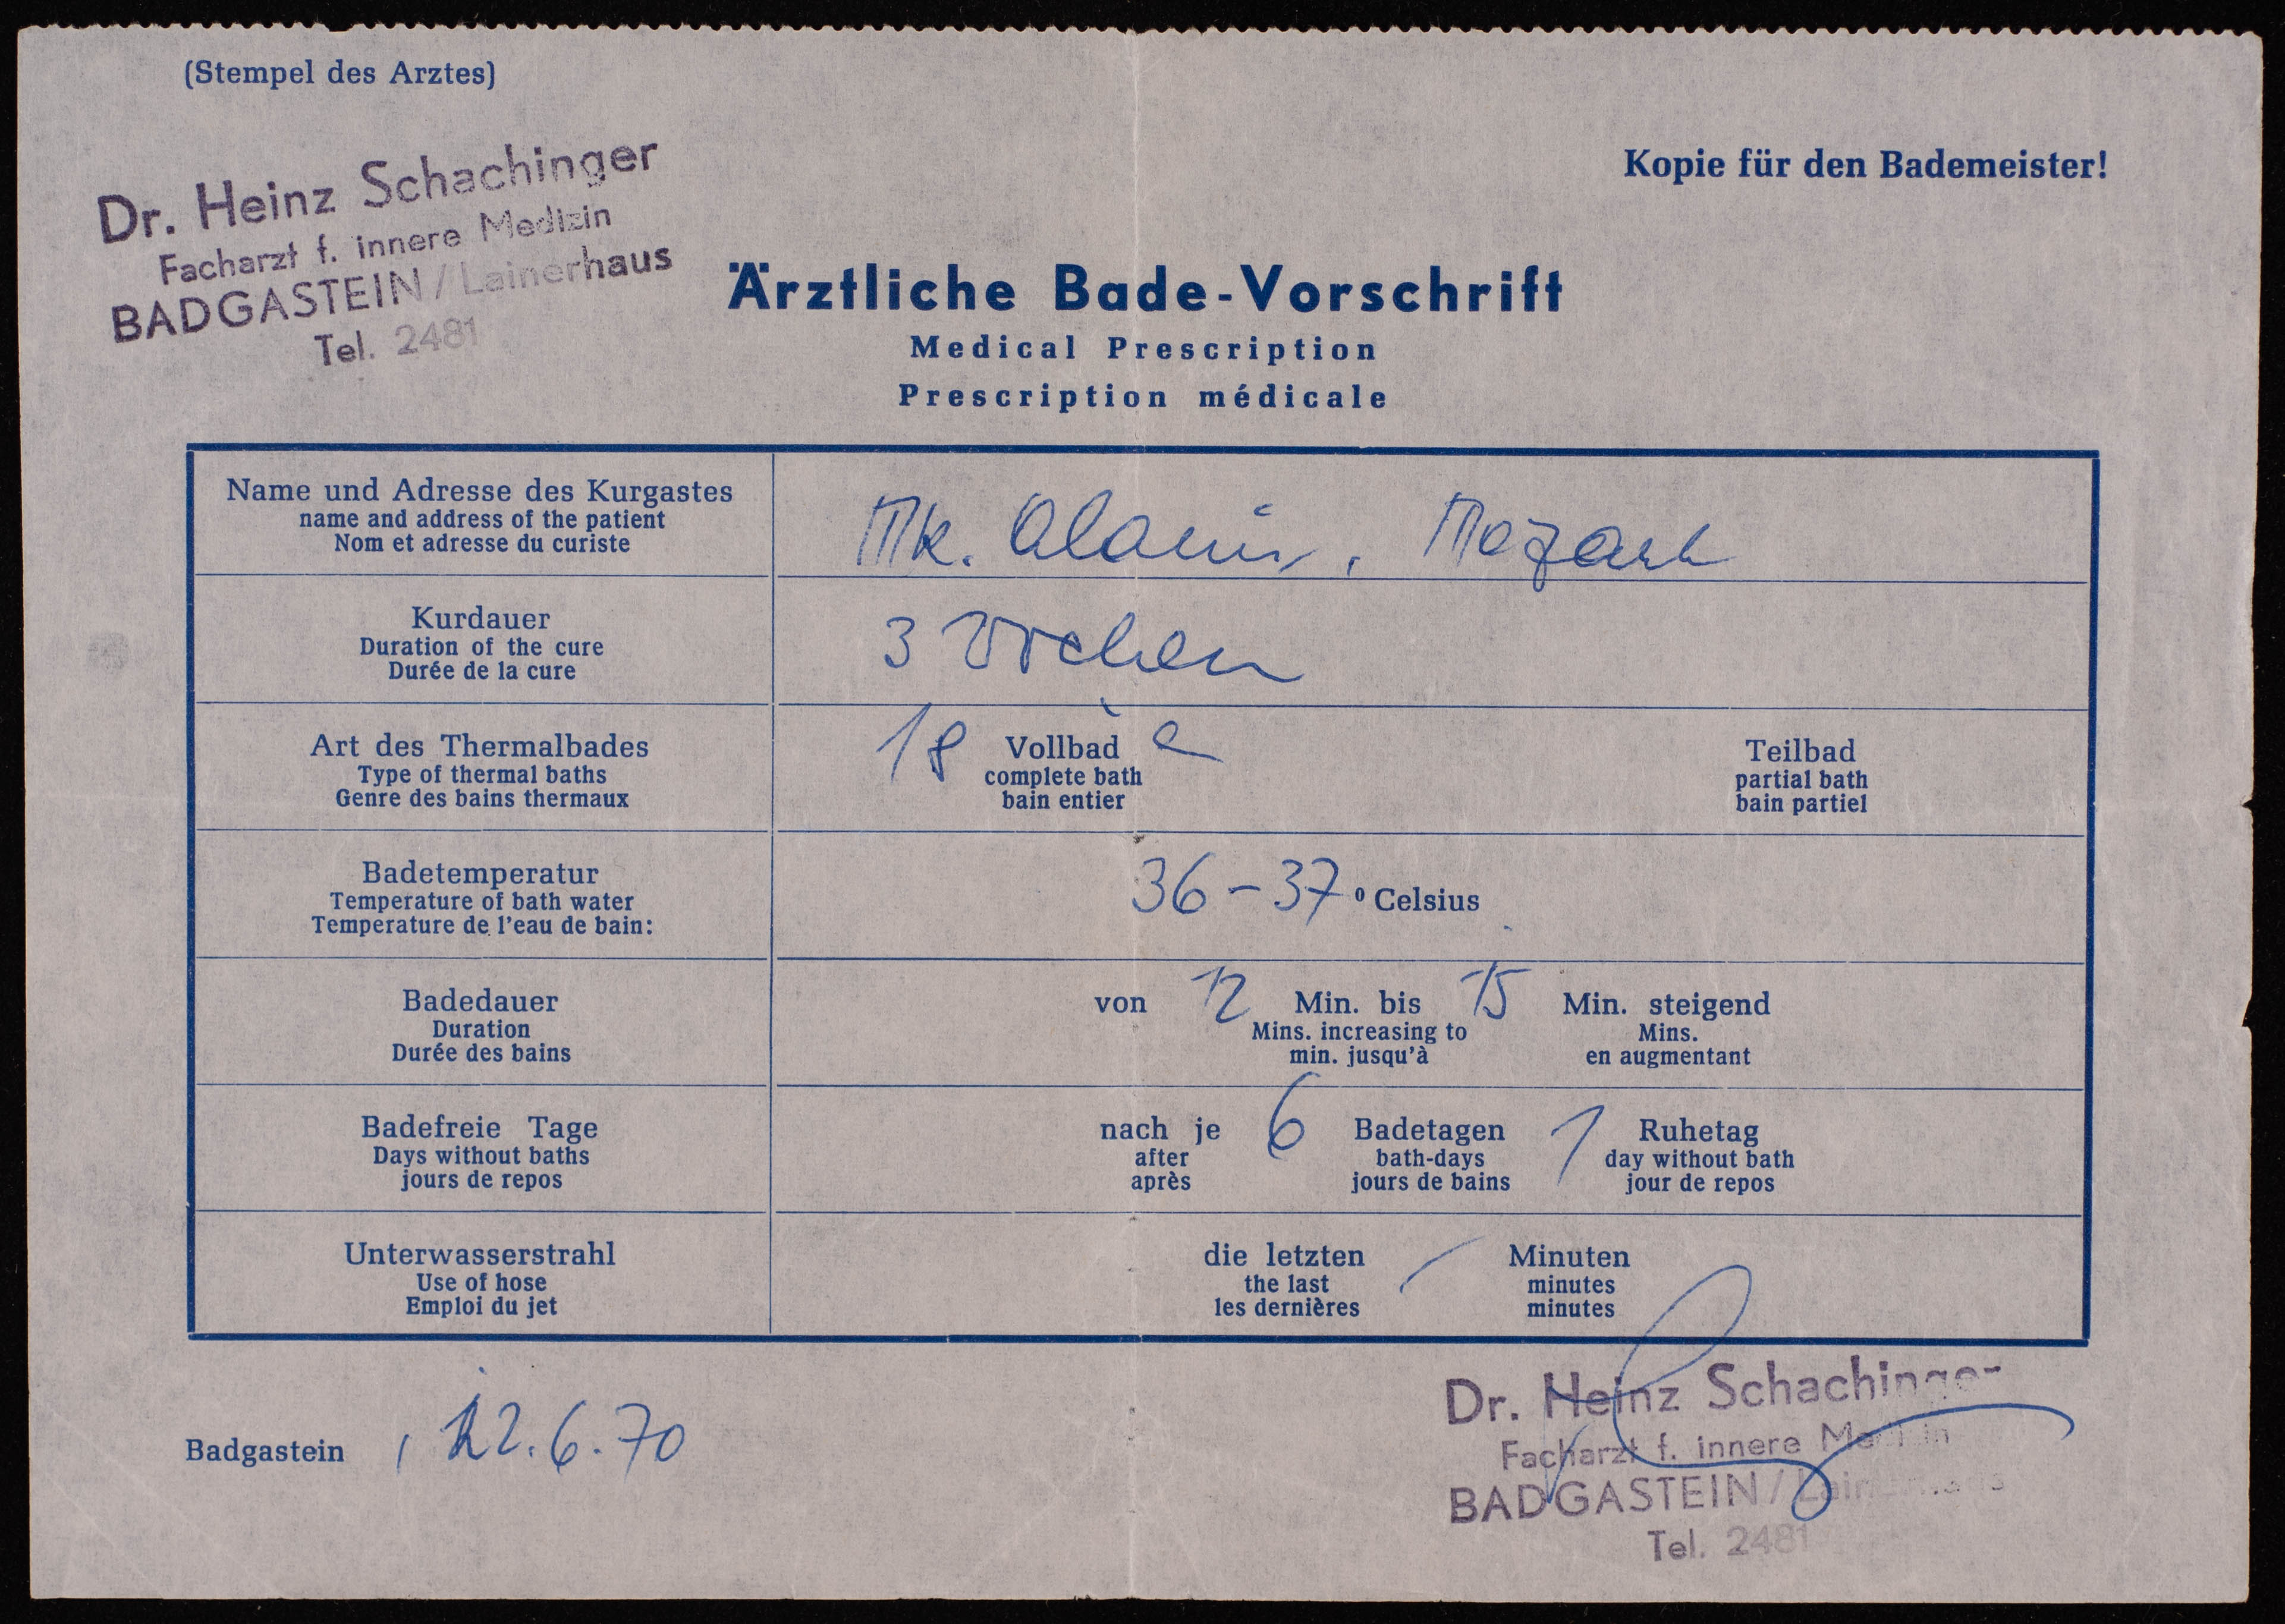 (Stempel des Arztes)
Dr. Heinz Schachinger
Facharzt f. innere Medizin
BADGASTEIN / Lainerhaus
Tel. 2481
Kopie für den Bademeister!
Ärztliche Bade-Vorschrift
Medical Prescription
Prescription médicale
Name und Adresse des Kurgastes
name and address of the patient
Nom et adresse du curiste
Mozart
Kurdauer
Duration of the cure
Durée de la cure
3 Wochen
Art des Thermalbades
Type of thermal baths
Genre des bains thermaux
18 Vollbad
complete bath
bain entier
Teilbad
partial bath
bain partiel
Badetemperatur
Temperature of bath water
Temperature de l'eau de bain:
36-37 ° Celsius
Badedauer
Duration
Durée des bains
von 12 Min. bis 15 Min. steigend
Mins. increasing to Mins.
min. jusqu'à en augmentant
Badefreie Tage
Days without baths
jours de repos
nach je 6 Badetagen 1 Ruhetag
after bath-days day without bath
après jours de bains jour de repos
Unterwasserstrahl
Use of hose
Emploi du jet
die letzten / Minuten
the last minutes
les dernières minutes
Badgastein, 22.6.70
Dr. Heinz Schachinger
Facharzt f. innere Medizin
BADGASTEIN / Lainerhaus
Tel. 2481